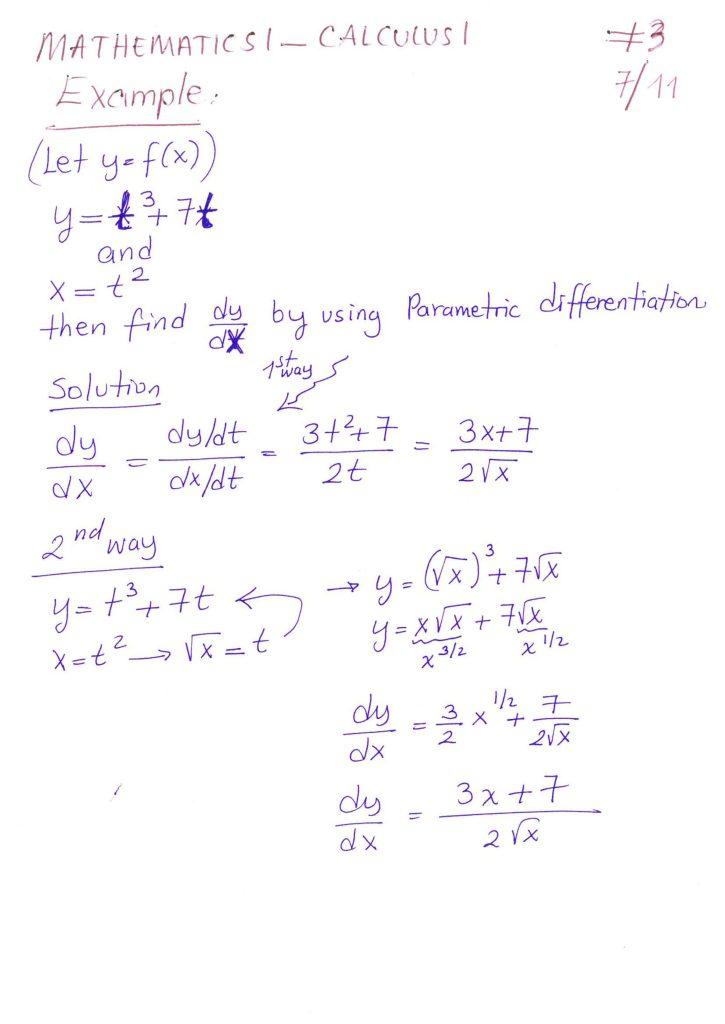 MATHEMATICS I – CALCULUS I
#3
7/11
Example:
(Let y=f(x))
y = t³ + 7t
and
x = t²
then find dy/dx by using Parametric differentiation
Solution
1st way
dy/dx = (dy/dt)/(dx/dt) = (3t²+7)/(2t) = (3x+7)/(2√x)
2nd way
y = t³ + 7t
x = t² → √x = t
→ y = (√x)³ + 7√x
y = x√x + 7√x
x^3/2 x^1/2
dy/dx = 3/2 x^1/2 + 7/(2√x)
dy/dx = (3x+7)/(2√x)